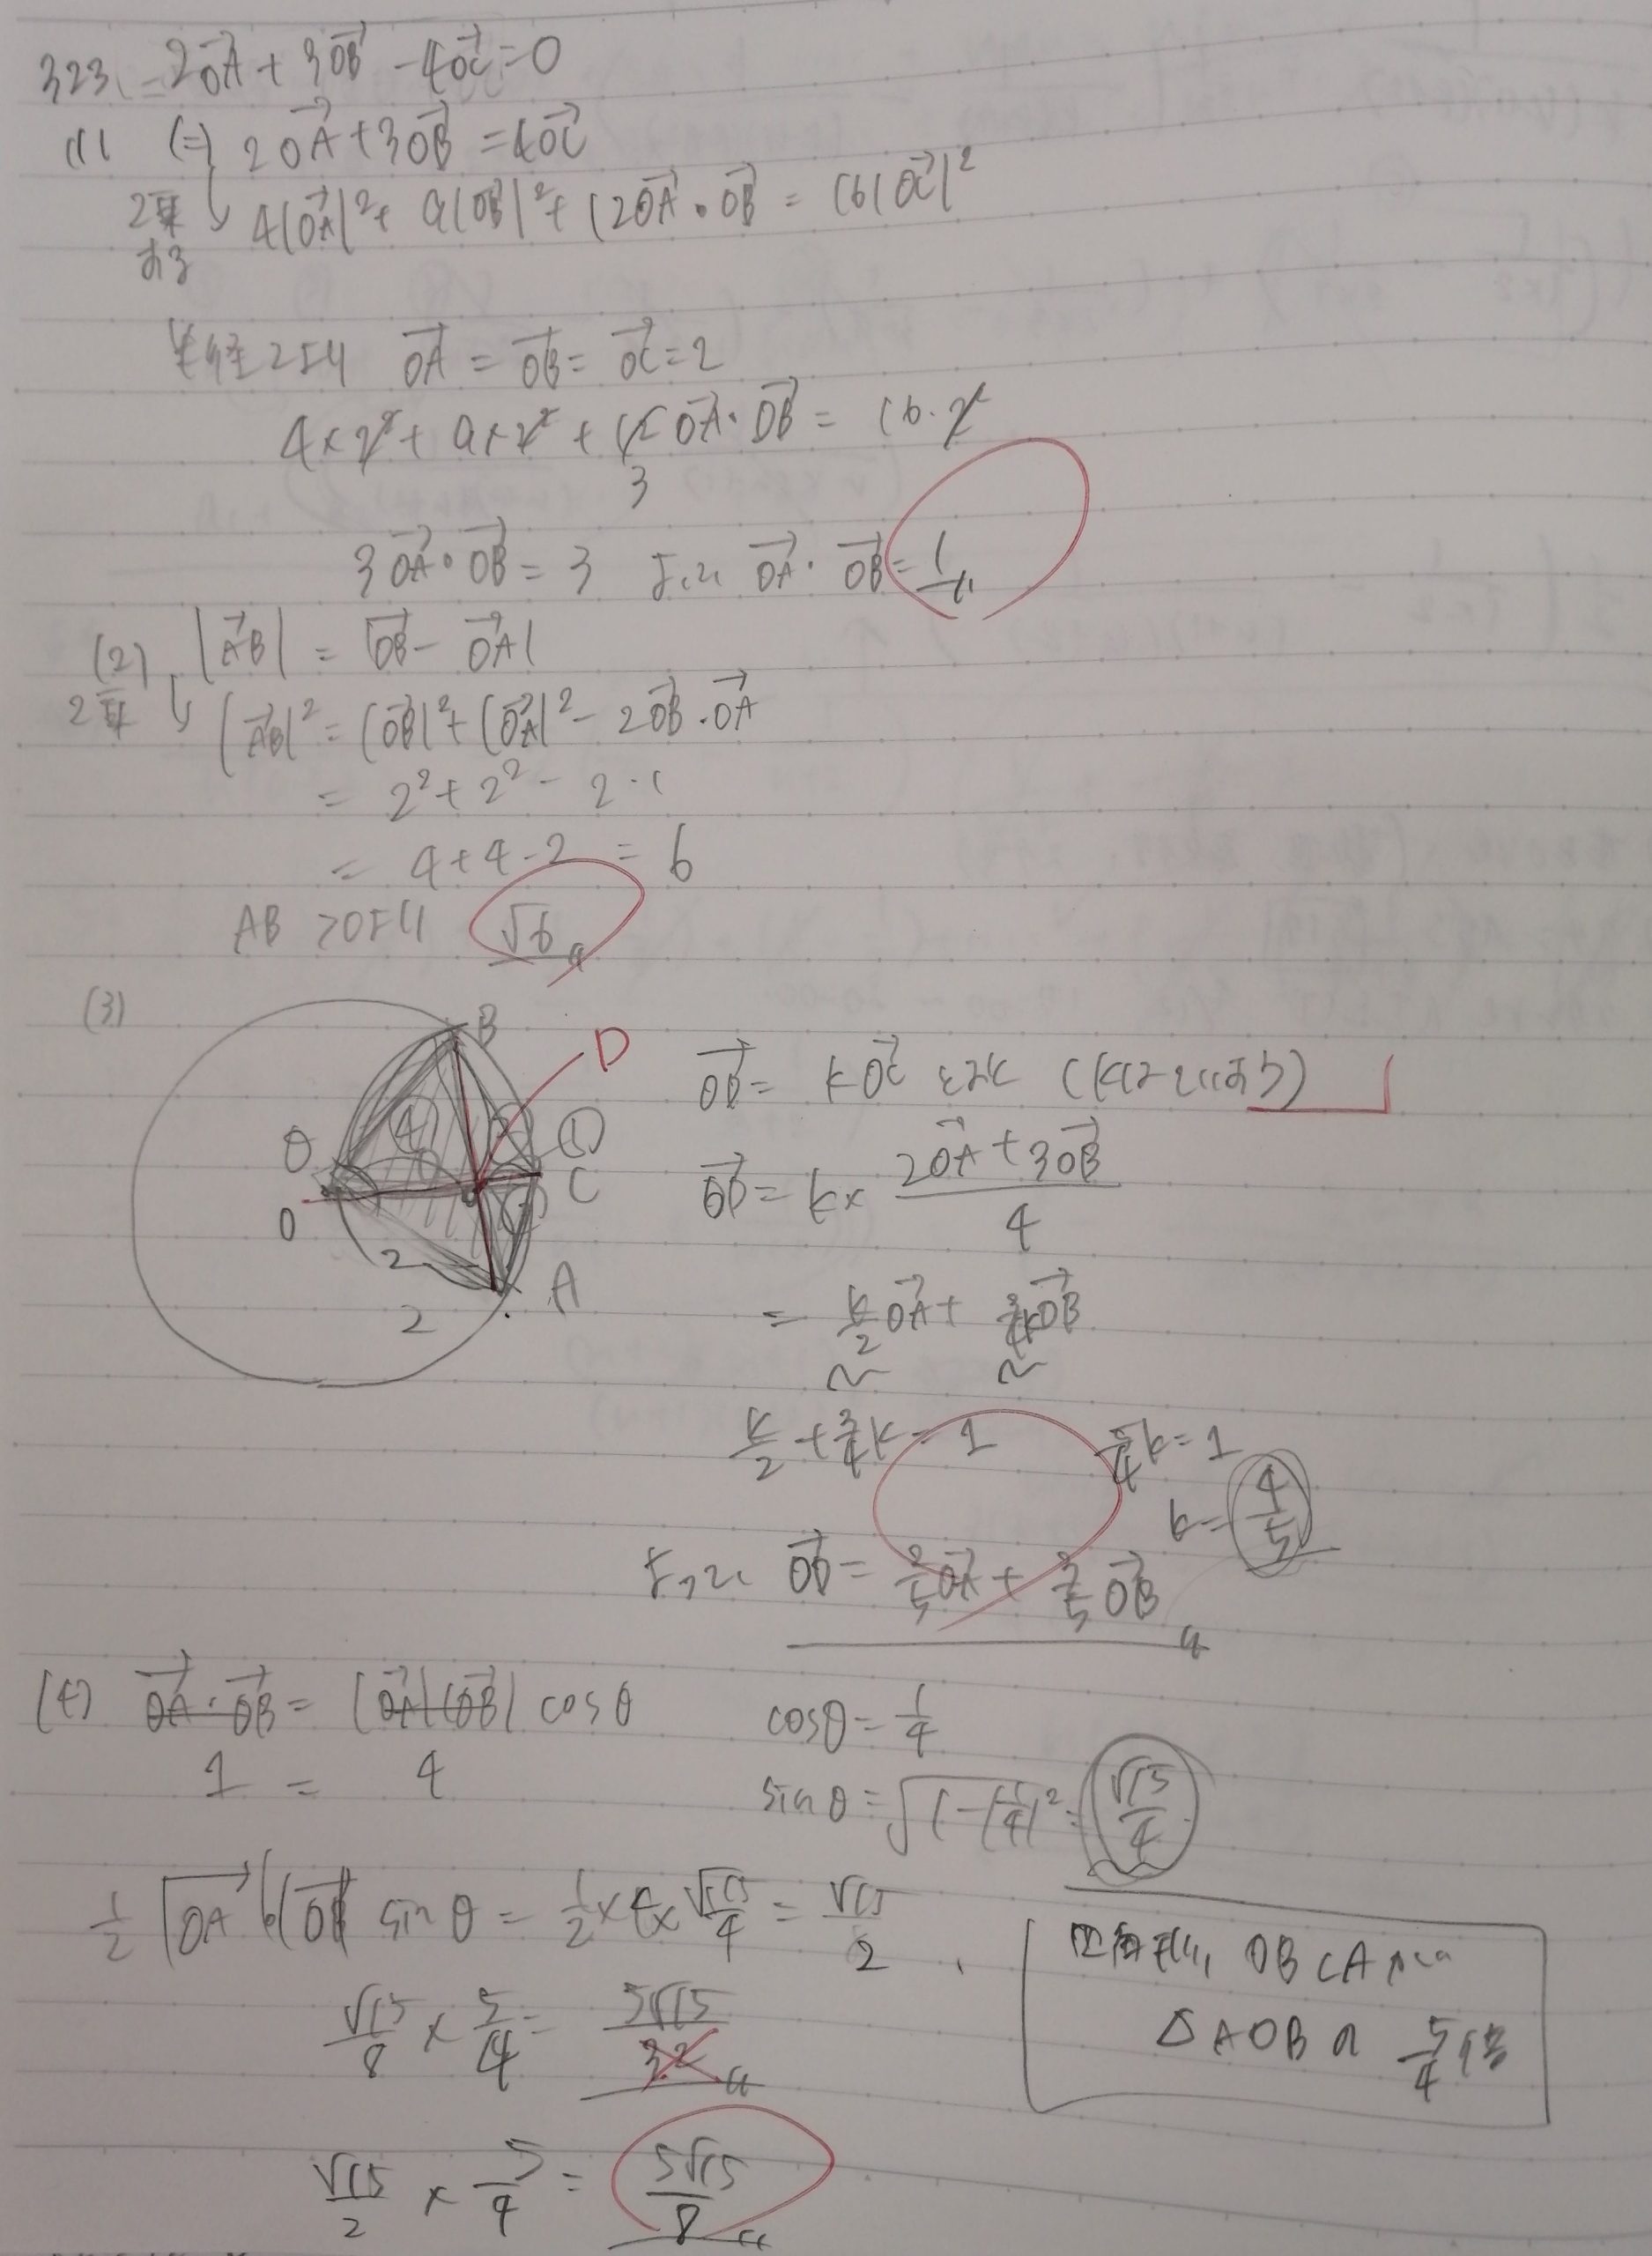 323. 2OA→ + 3OB→ - 4OC→ = 0
(1) (=) 2OA→ + 3OB→ = 4OC→
2乗する 4|OA→|² + 9|OB→|² + 12OA→・OB→ = 16|OC→|²
半径2より OA→ = OB→ = OC→ = 2
4×2² + 9×2² + 12OA→・OB→ = 16・2²
3
3OA→・OB→ = 3 よって OA→・OB→ = 1
(2) |AB→| = |OB→ - OA→|
2乗 |AB→|² = |OB→|² + |OA→|² - 2OB→・OA→
= 2² + 2² - 2・1
= 4 + 4 - 2 = 6
AB > 0より √6
(3)
B
D
O
4
1
C
O
2
A
2
OD→ = kOC→ とすると (kは実数)
OD→ = k× (2OA→ + 3OB→)/4
= k/2 OA→ + 3/4 kOB→
k/2 + 3/4 k = 1 5/4 k = 1
k = 4/5
よって OD→ = 2/5 OA→ + 3/5 OB→
(4) OA→・OB→ = |OA→||OB→| cosθ cosθ = 1/4
1 = 4
sinθ = √(1-(1/4)²) = √15/4
1/2 |OA→||OB→| sinθ = 1/2 × 4 × √15/4 = √15/2
四角形 OBCA
△AOBの 5/4倍
√15/8 × 5/4 = 5√15/32
√15/2 × 5/4 = 5√15/8